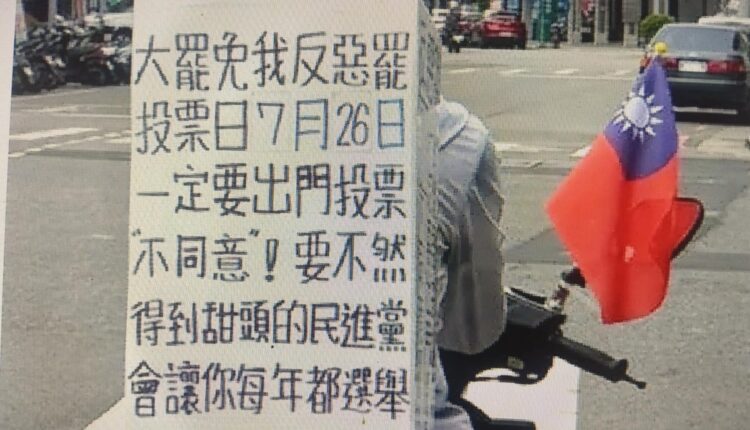 大罷免我反惡罷
投票日7月26日
一定要出門投票
"不同意"!要不然
得到甜頭的民進黨
會讓你每年都選舉